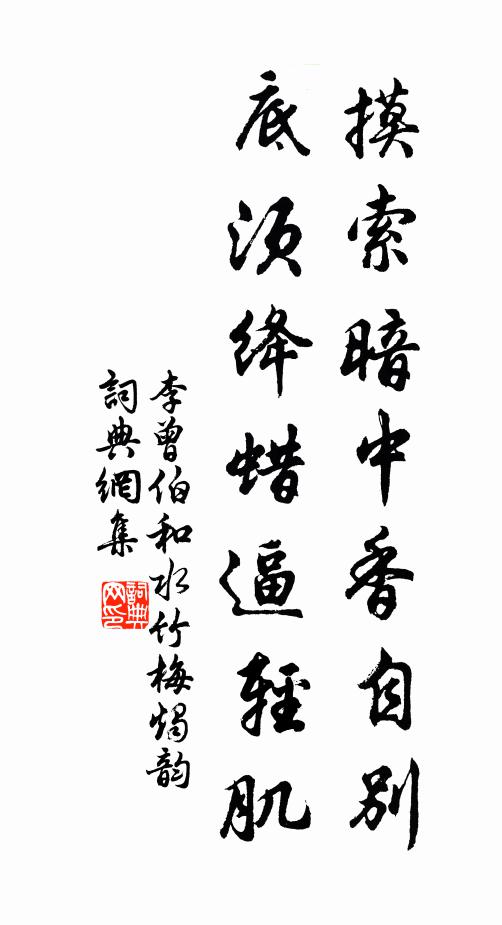 摸索暗中香自别
底须绛蜡逼輕肌
李曾伯和水竹梅燭韵
詞典網集
詞典网印